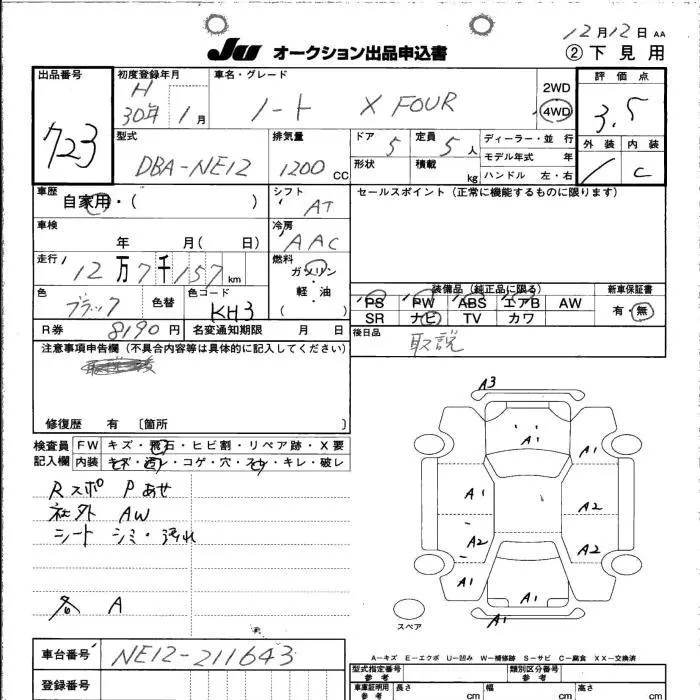 12月12日 AA
JU オークション出品申込書 ② 下見用
出品番号 初度登録年月 車名・グレード 2WD 評価点
723 H 30年 1月 ノート X FOUR 4WD 3.5
型式 排気量 ドア 5 定員 5人 ディーラー・並行 外装 内装
DBA-NE12 1200cc 形状 積載 kg モデル年式 年 C
ハンドル 左・右
車歴 自家用・( ) シフト AT セールスポイント (正常に機能するものに限ります)
車検 年 月( 日) 冷房 AAC
走行 12万7千157km 燃料 ガソリン・軽油 ( )
色 ブラック 色替 色コード KH3
装備品 (純正品に限る) 新車保証書
PS PW ABS エアB AW 有・無
SR ナビ TV カワ
R券 8190円 名変通知期限 月 日 後日品 取説
注意事項申告欄 (不具合内容等は具体的に記入してください)
修復歴 有 〔箇所 〕
検査員記入欄 FW キズ・飛石・ヒビ割・リペア跡・X要
内装 キズ・汚れ・コゲ・穴・スレ・キレ・破レ
Rスポ Pあせ
社外 AW
シート シミ・汚れ
各 A
A3
A1
A1 A1
A1 A2
A2 A2
A1 A1
A1
A1
スペア
A-キズ E-エクボ U-凹み W-補修跡 S-サビ C-腐食 XX-交換済
車台番号 NE12-211643
登録番号
型式指定番号 参考 類別区分番号 参考
車庫証明用 参考 長さ cm 幅 cm 高さ cm